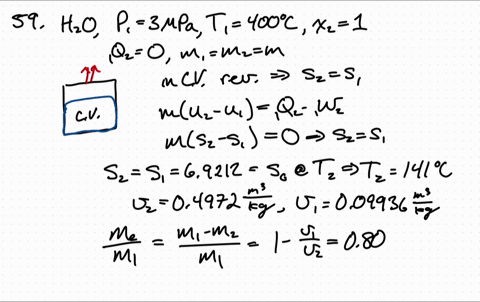 59. H₂O, P₁=3MPa, T₁=400°C, x₂=1
₁Q₂=0, m₁=m₂=m
m C.V. rev. ⇒ S₂=S₁
C.V.
m(u₂-u₁)=₁Q₂-₁W₂
m(S₂-S₁)=0 → S₂=S₁
S₂=S₁=6.9212=S_G @ T₂ ⇒ T₂=141°C
υ₂=0.4972 m³/kg, υ₁=0.09936 m³/kg
me/m₁ = (m₁-m₂)/m₁ = 1-υ₁/υ₂ = 0.80